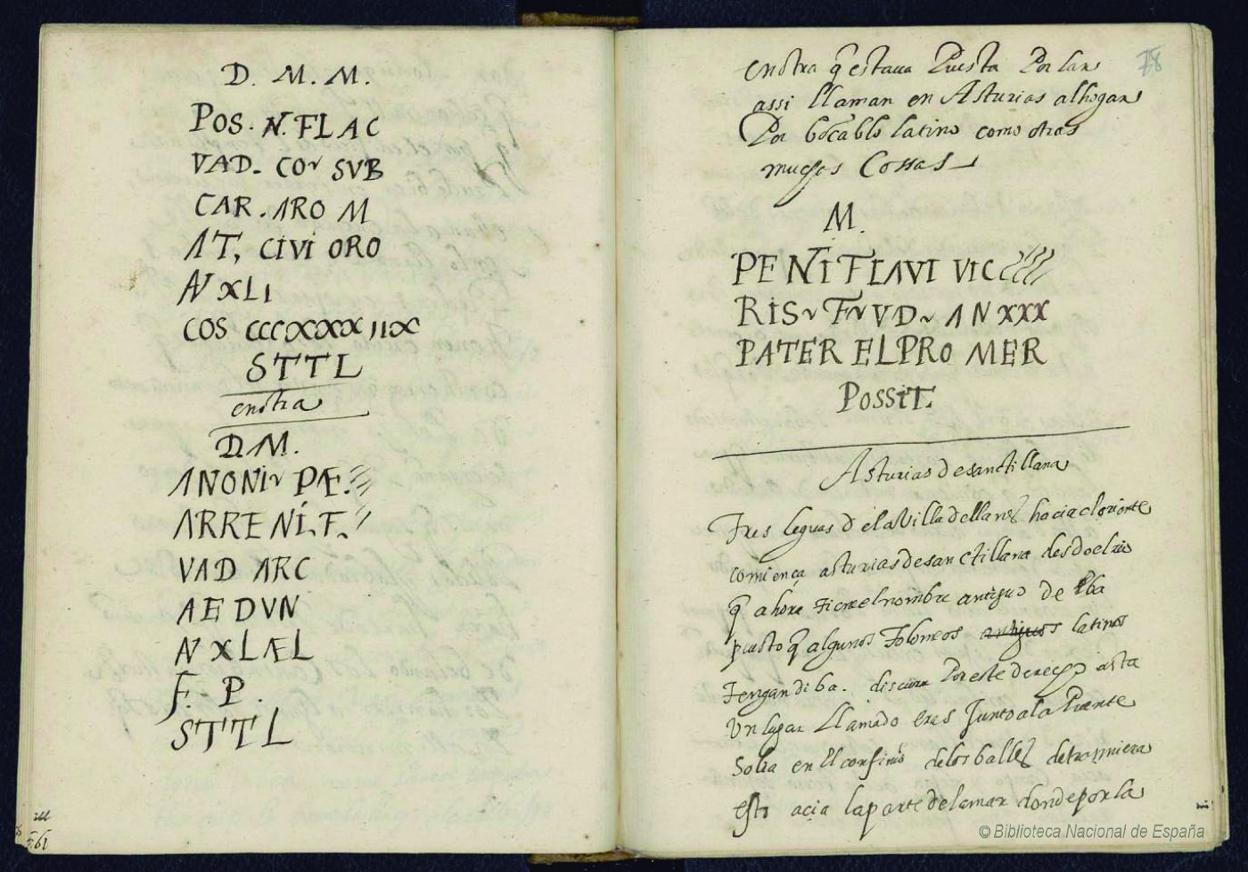 D. M. M.
POS. N. FLAC
VAD. COV SVB
CAR. ARO M
AT, CIVI ORO
N XLI
COS CCCXXXX IIX
STTL
enotra
D. M.
ANONI PÆ.
ARRENI. F.
VAD ARC
AEDVN
N XLÆL
F. P
STTL
161
78
enotra q̃ estaua Puesta Por lar
assi llaman en Asturias al hogar
Por bocablo latino como otras
muchas Cossas
M.
PENTI FLAVI VIC
RIS F VD AN XXX
PATER EL PRO MER
POSSIT.
Asturias de sanctillana
Tres leguas d ela Villa de llanes hacia el oriente
comiença asturias de sanctillana desdo el rio
q̃ ahora tiene el nombre antiguo de Eba
puesto q̃ algunos Tolomeos antiguos latinos
Tengan diba. discurre Por este derecho asta
Un lugar Llamado eres Junto a la Puente
Solia en El confin de los balles de tras miera
esto acia la parte de la mar donde por la
© Biblioteca Nacional de España